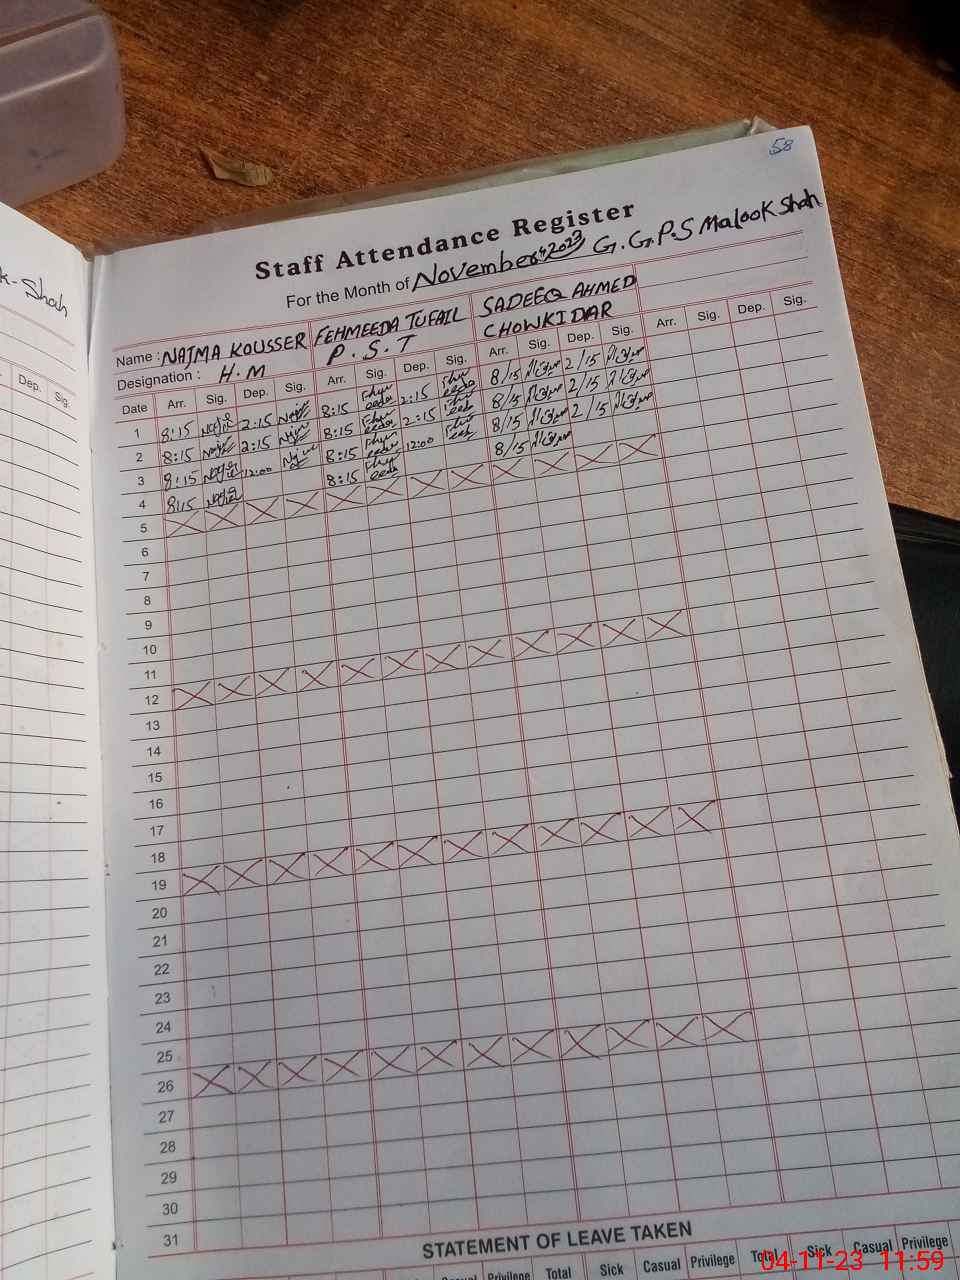 58
Staff Attendance Register
For the Month of November 2023 G.G.P.S Malook Shah
k-Shah
Name : NAJMA KOUSSER FEHMEEDA TUFAIL SADEEQ AHMED
Designation : H.M P.S.T CHOWKIDAR
Dep. Sig.
Date Arr. Sig. Dep. Sig. Arr. Sig. Dep. Sig. Arr. Sig. Dep. Sig. Arr. Sig. Dep. Sig.
1 8:15 2:15 8:15 2:15 8/15 2/15
2 8:15 2:15 8:15 2:15 8/15 2/15
3 8:15 12:00 8:15 12:00 8/15 2/15
4 8:15 8:15 8/15
5
6
7
8
9
10
11
12
13
14
15
16
17
18
19
20
21
22
23
24
25
26
27
28
29
30
31
STATEMENT OF LEAVE TAKEN
Casual Privilege Total Sick Casual Privilege Total Sick Casual Privilege
04-11-23 11:59